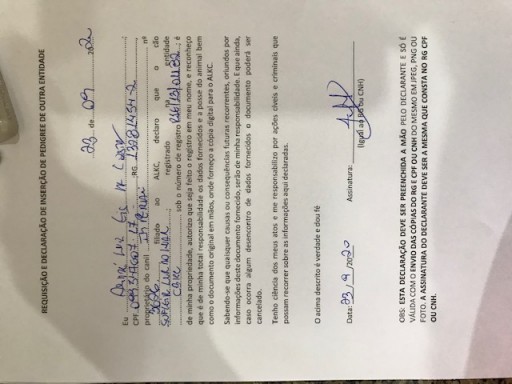 REQUISIÇÃO E DECLARAÇÃO DE INSERÇÃO DE PEDIGREE DE OUTRA ENTIDADE
23 de 09
Eu
CPF: RG:
proprietário do canil nº
filiado ao ALKC, declaro que o cão
registrado na entidade
sob o número de registro é
de minha propriedade, autorizo que seja feito o registro em meu nome, e reconheço
que é de minha total responsabilidade os dados fornecidos e a posse do animal bem
como o documento original em mãos, onde forneço a cópia digital para o ALKC.
Sabendo-se que quaisquer causas ou consequências futuras recorrentes, oriundos por
informações deste documento fornecido, serão de minha responsabilidade. E que ainda,
caso ocorra algum desencontro de dados fornecidos o documento poderá ser
cancelado.
Tenho ciência dos meus atos e me responsabilizo por ações cíveis e criminais que
possam recorrer sobre as informações aqui declaradas.
O acima descrito é verdade e dou fé
Data: 23/9/2020 Assinatura:
(igual ao RG ou CNH)
OBS: ESTA DECLARAÇÃO DEVE SER PREENCHIDA A MÃO PELO DECLARANTE E SÓ É
VÁLIDA COM O ENVIO DAS CÓPIAS DO RG E CPF OU CNH DO MESMO EM JPEG, PNG OU
FOTO. A ASSINATURA DO DECLARANTE DEVE SER A MESMA QUE CONSTA NO RG CPF
OU CNH.